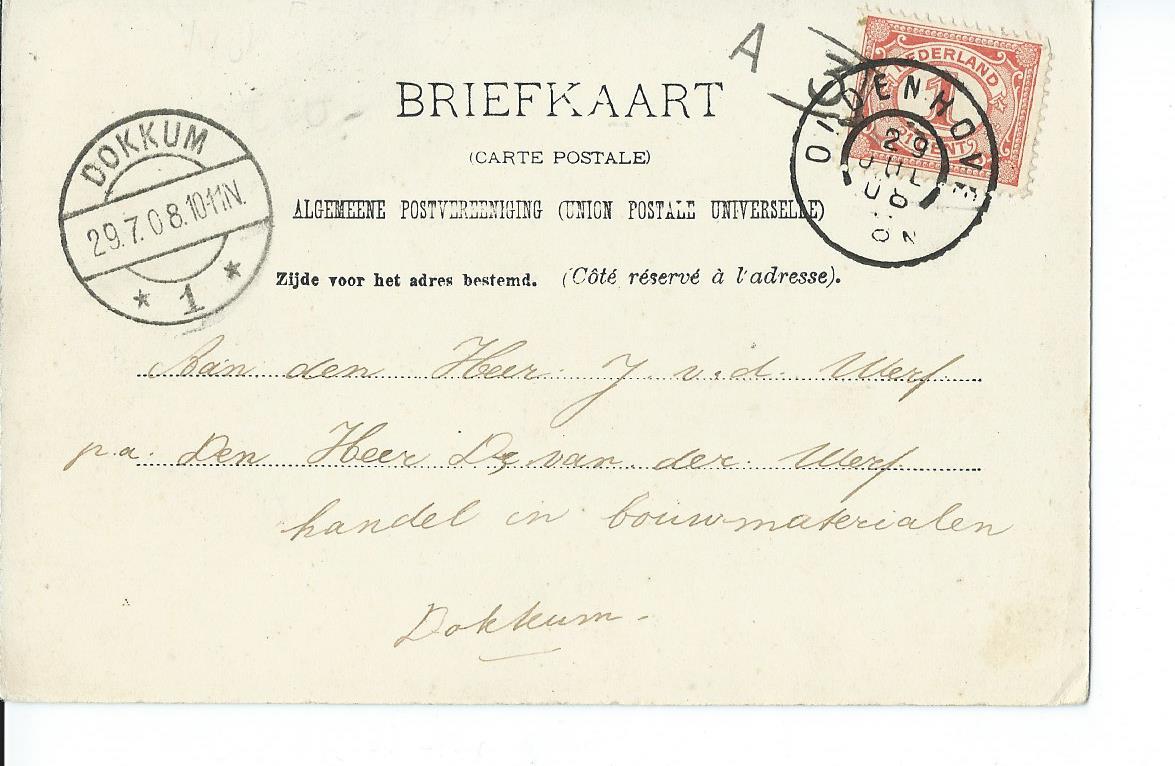 A
NEDERLAND
1
CENT
OLDENHOVE
29
JUL
08
8N
BRIEFKAART
(CARTE POSTALE)
ALGEMEENE POSTVEREENIGING (UNION POSTALE UNIVERSELLE)
Zijde voor het adres bestemd. (Côté réservé à l'adresse).
DOKKUM
29.7.08.10-11N.
* 1 *
Aan den Heer J v.d. Werf
p.a. Den Heer D. van der Werf
handel in bouwmaterialen
Dokkum.